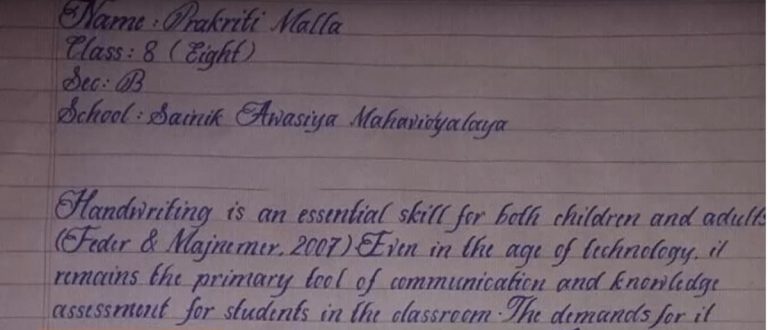 Name : Prakriti Malla
Class : 8 (Eight)
Sec : B
School : Sainik Awasiya Mahavidyalaya
Handwriting is an essential skill for both children and adults
(Feder & Majnemer, 2007) Even in the age of technology, it
remains the primary tool of communication and knowledge
assessment for students in the classroom. The demands for it